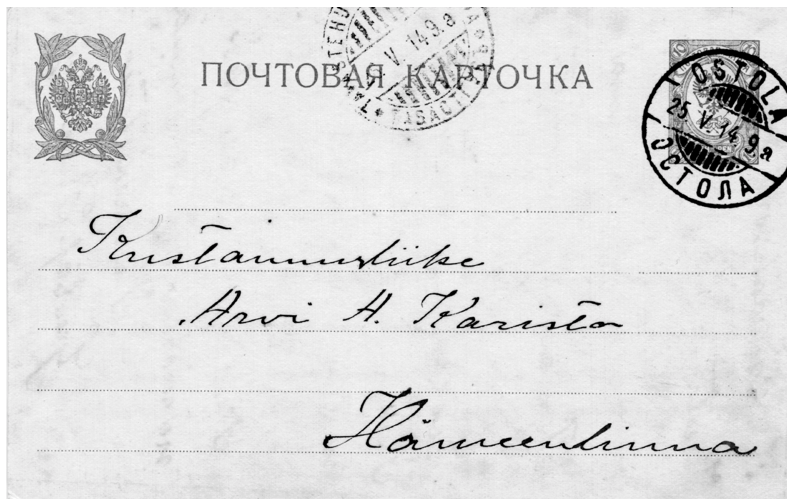 ПОЧТОВАЯ КАРТОЧКА
V. 14.9.a
10 10
OSTOLA
25. V. 14. 9.a
ОСТОЛА
Kustannusliike
Arvi A. Karisto
Hämeenlinna